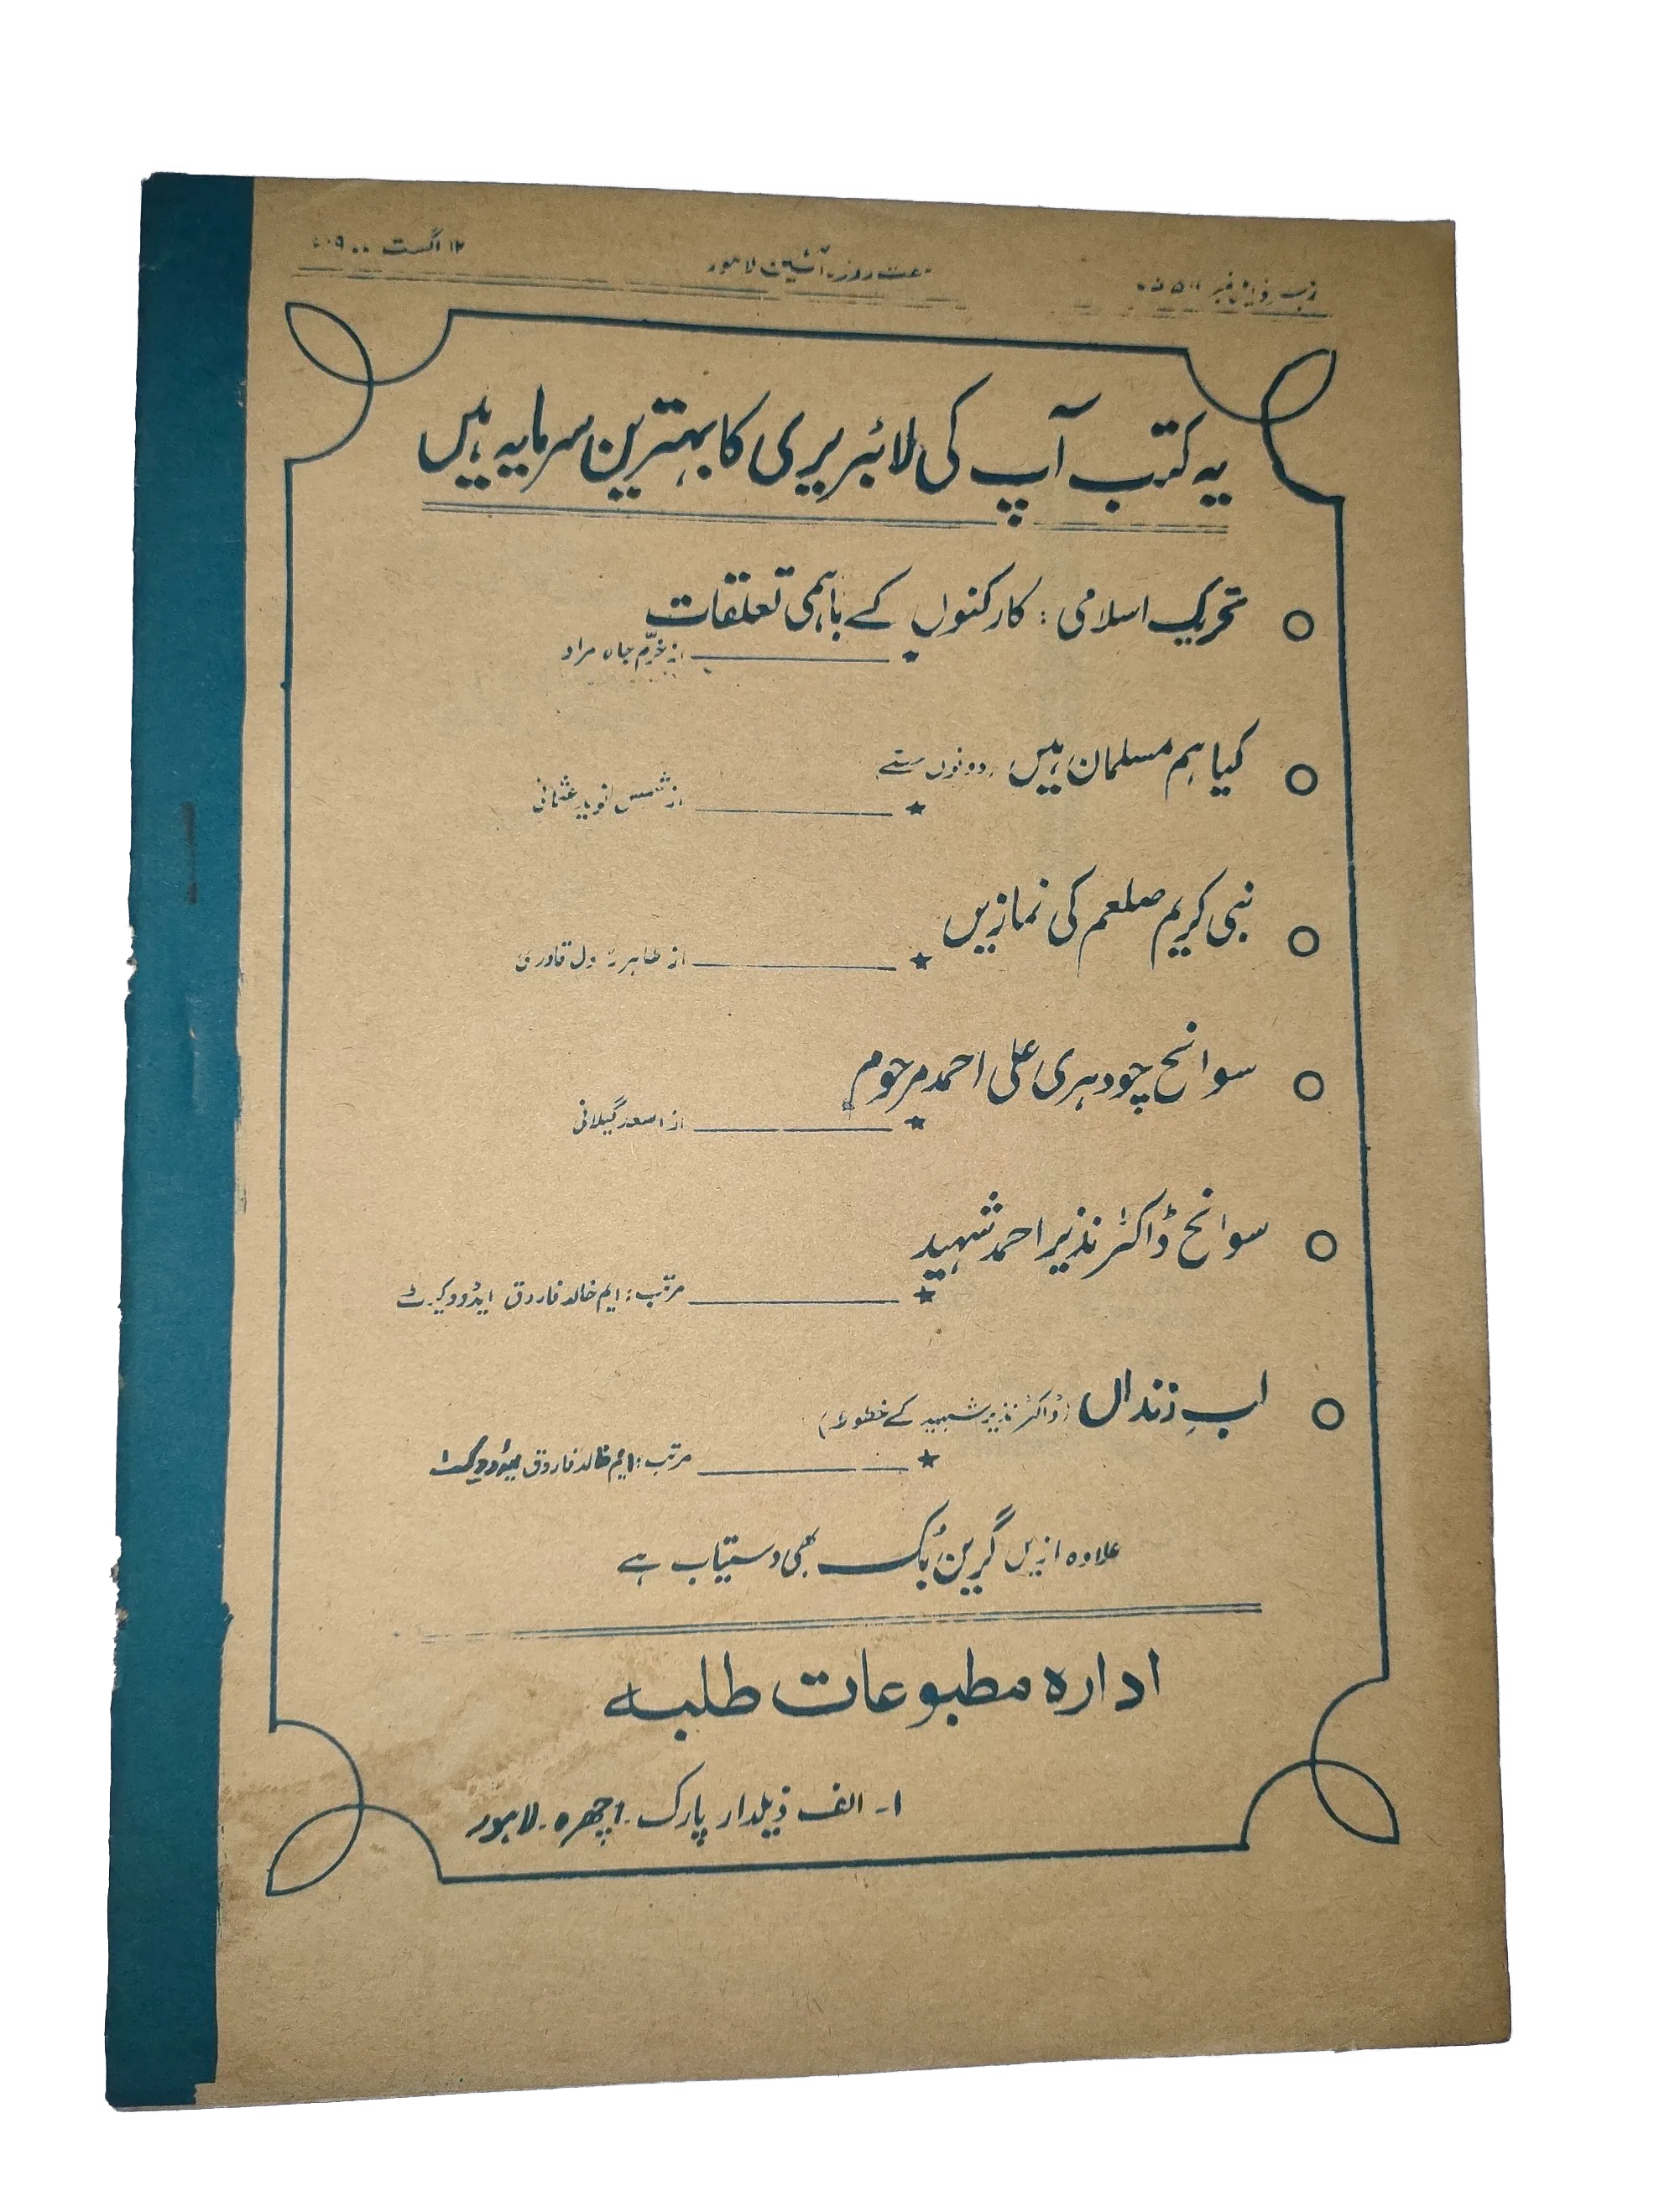 ہفت روزہ آئین لاہور
۱۲ اگست
یہ کتب آپ کی لائبریری کا بہترین سرمایہ ہیں
تحریک اسلامی : کارکنوں کے باہمی تعلقات
از خرّم جاہ مراد
کیا ہم مسلمان ہیں (دونوں حصے)
از شمس نوید عثمانی
نبی کریم صلعم کی نمازیں
از طاہر رسول قادری
سوانح چودہری علی احمد مرحوم
از اسعد گیلانی
سوانح ڈاکٹر نذیر احمد شہید
مرتب : ایم خالد فاروق ایڈووکیٹ
لبِ زنداں (ڈاکٹر نذیر شہید کے خطوط)
مرتب : ایم خالد فاروق ایڈووکیٹ
علاوہ ازیں گرین بُک بھی دستیاب ہے
ادارہ مطبوعات طلبہ
۱- الف ذیلدار پارک - اچھرہ - لاہور